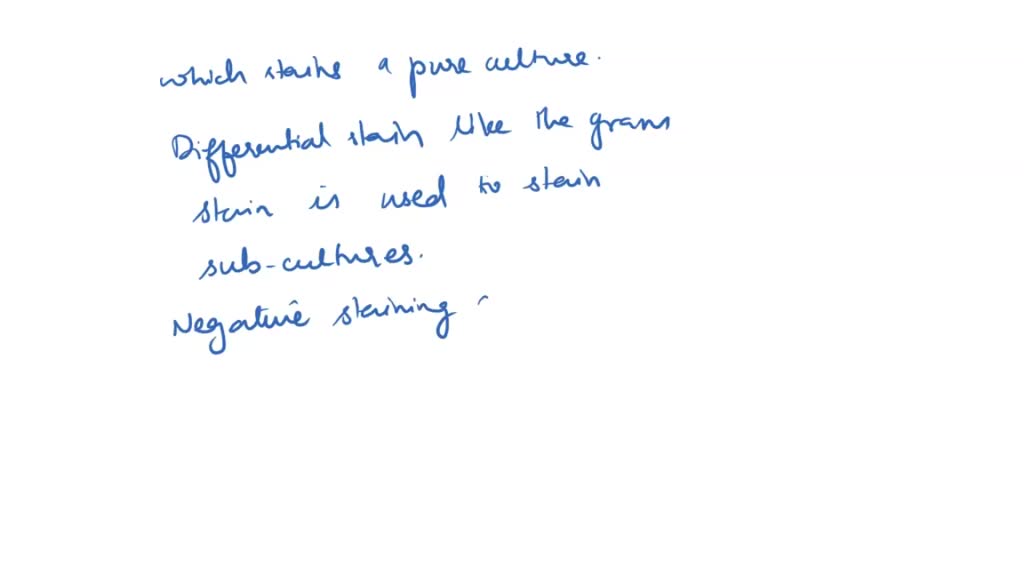 which stains a pure culture.
Differential stain like the gram
stain is used to stain
sub-cultures.
Negative staining